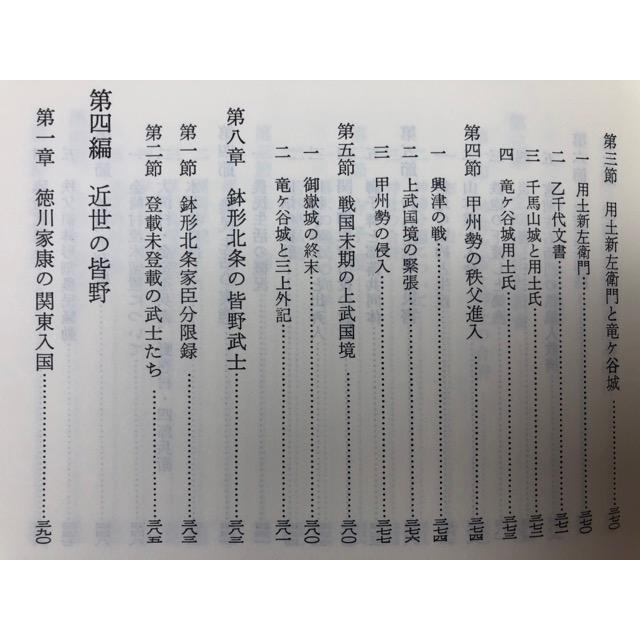 第三節　用土新左衛門と竜ケ谷城……三七〇
一　用土新左衛門……三七〇
二　乙千代文書……三七一
三　千馬山城と用土氏……三七二
四　竜ケ谷城用土氏……三七三
第四節　甲州勢の秩父進入……三七四
一　興津の戦……三七四
二　上武国境の緊張……三七六
三　甲州勢の侵入……三七七
第五節　戦国末期の上武国境……三八〇
一　御嶽城の終末……三八〇
二　竜ケ谷城と三上外記……三八一
第八章　鉢形北条の皆野武士……三八三
第一節　鉢形北条家臣分限録……三八三
第二節　登載未登載の武士たち……三八五
第四編　近世の皆野
第一章　徳川家康の関東入国……三九〇